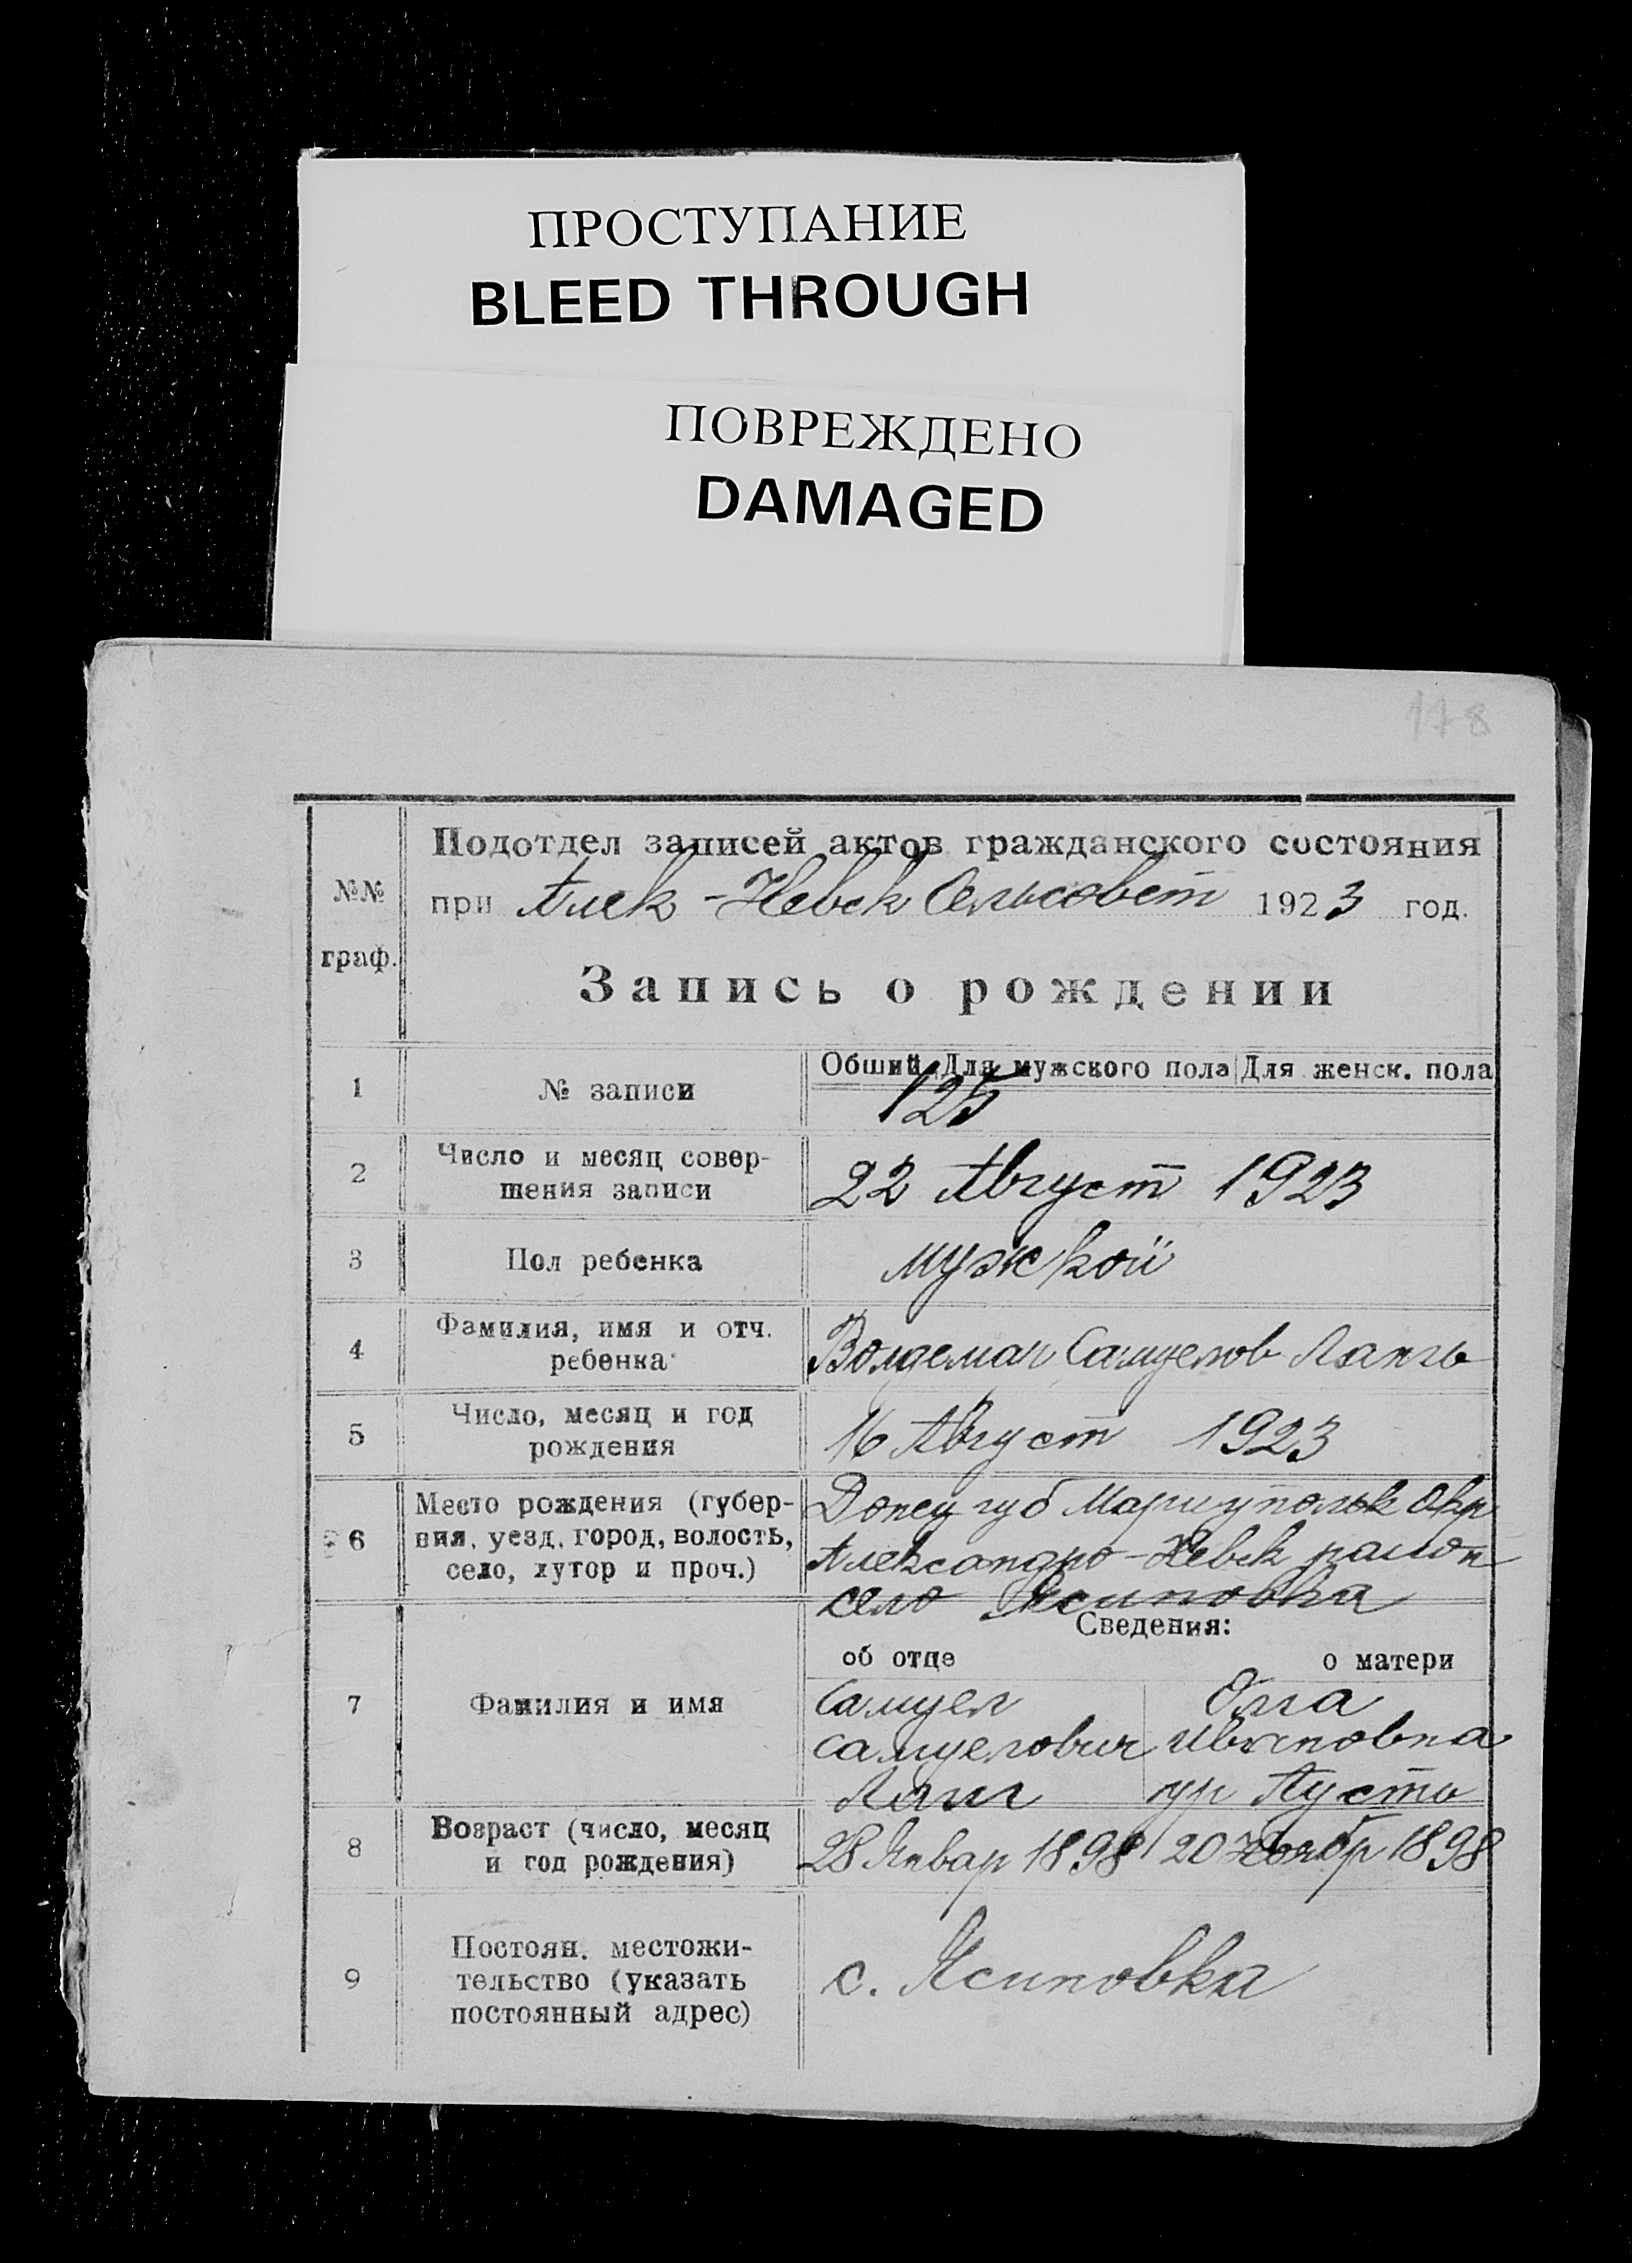 ПРОСТУПАНИЕ
BLEED THROUGH
ПОВРЕЖДЕНО
DAMAGED
178
№№
граф.
Подотдел записей актов гражданского состояния
при Алек-Невск Сельсовет 1923 год.
Запись о рождении
1
№ записи
Обший Для мужского пола Для женск. пола
125
2
Число и месяц совер-
шения записи
22 Август 1923
3
Пол ребенка
мужской
4
Фамилия, имя и отч.
ребенка
Волдемар Самуелов Лангь
5
Число, месяц и год
рождения
16 Август 1923
6
Место рождения (губер-
ния, уезд, город, волость,
село, хутор и проч.)
Донец губ Мариупольск Окр
Александро-Невск район
село Ясиновка
Сведения:
об отце
о матери
7
Фамилия и имя
Самуел Олга
Самуелович Ивановна
Ланг ур Пусть
8
Возраст (число, месяц
и год рождения)
28 Январ 1898 20 Ноябр 1898
9
Постоян. местожи-
тельство (указать
постоянный адрес)
с. Ясиновка